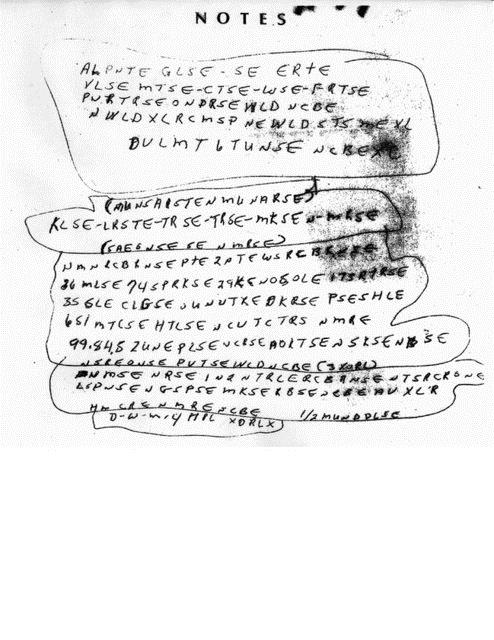 NOTES
ALPNTE GLSE-SE ERTE
VLSE MTSE-CTSE-WSE-FRTSE
PVRTRSEONDRSEWLD NCBE
NWLDXLRCMSP NEWLDSTSMEXL
DULMT6TUNSE NCBEXC
(MUNSAISTENMUNARSE)
KLSE-LRSTE-TRSE-TRSE-MKSEN-MRSE
(SAEGNSESE NMBSE)
NMNRCBRNSEPTE2PTEWSRCBRNSE
36MLSE74SPRKSE29KENOSOLE 173RTRSE
35GLE CLGSEOUNUTREDKRSE PSESHLE
651MTCSE HTLSENCUTCTRS NMRE
99.84.52UNEPLSENCRSEAOLTSENSKSENBSE
NSREONSE PUTSEWLDNCBE(3XORL)
NMSE NRSE INZNTRLERCBRNSENTSRCRONE
LSPNSENGSPSEMKSERBSENCBEAUXLR
HM CRENMRENCBE 1/2MUNDDLSE
D-W-M-4MIL XDRLX